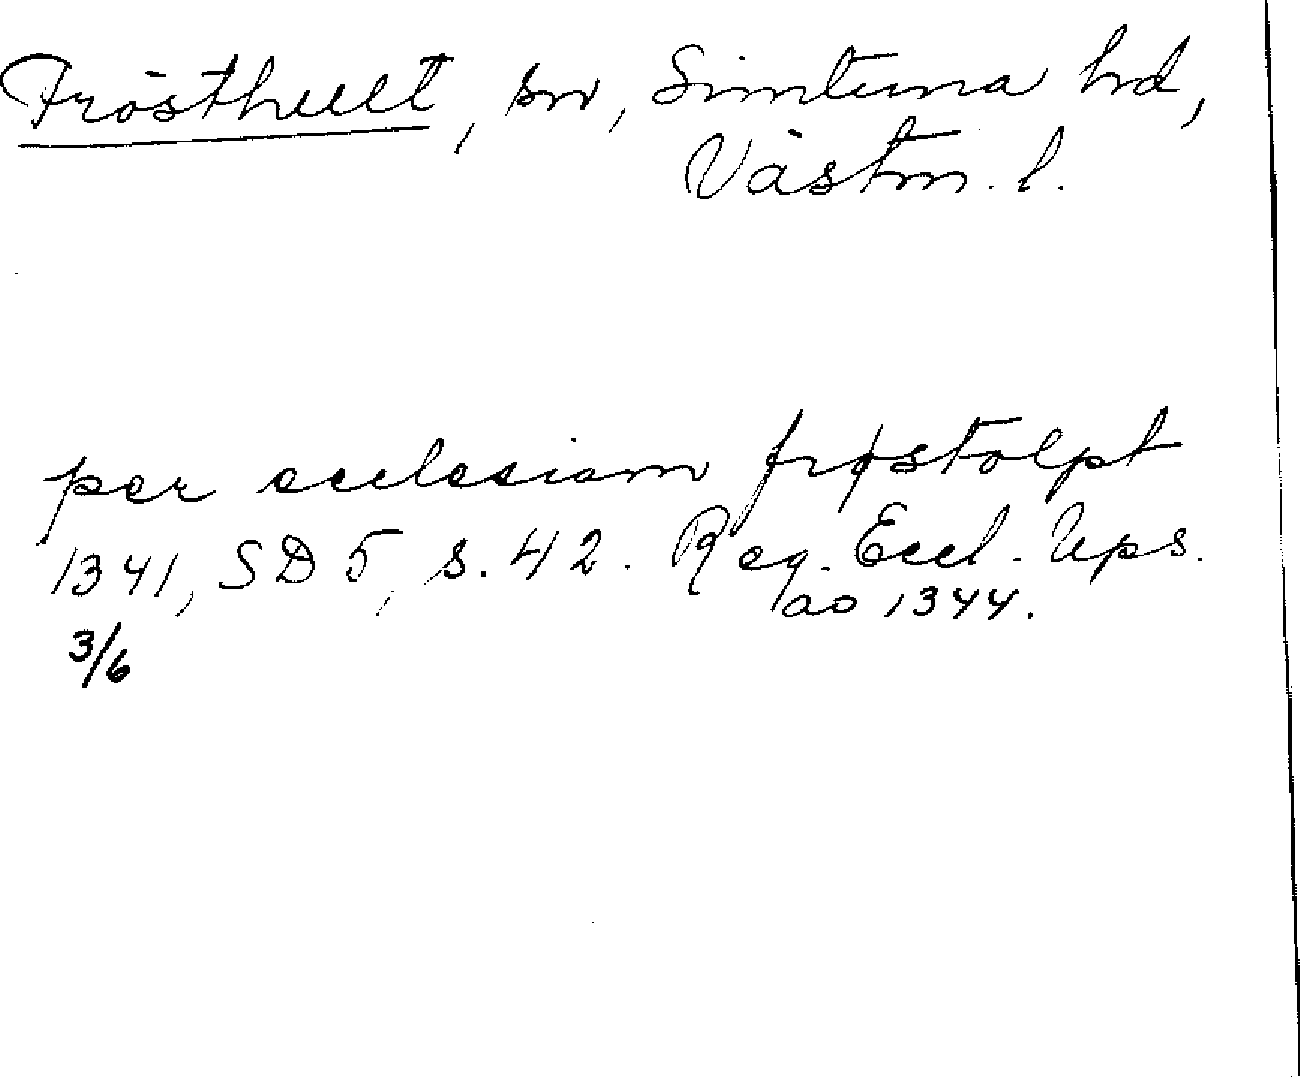 Frösthult, sn, Simtuna hd,
Västm. l.
per ecclesiam frøstolpt
1341, SD 5, s. 42. Reg. Eccl. Ups.
ao 1344.
3/6